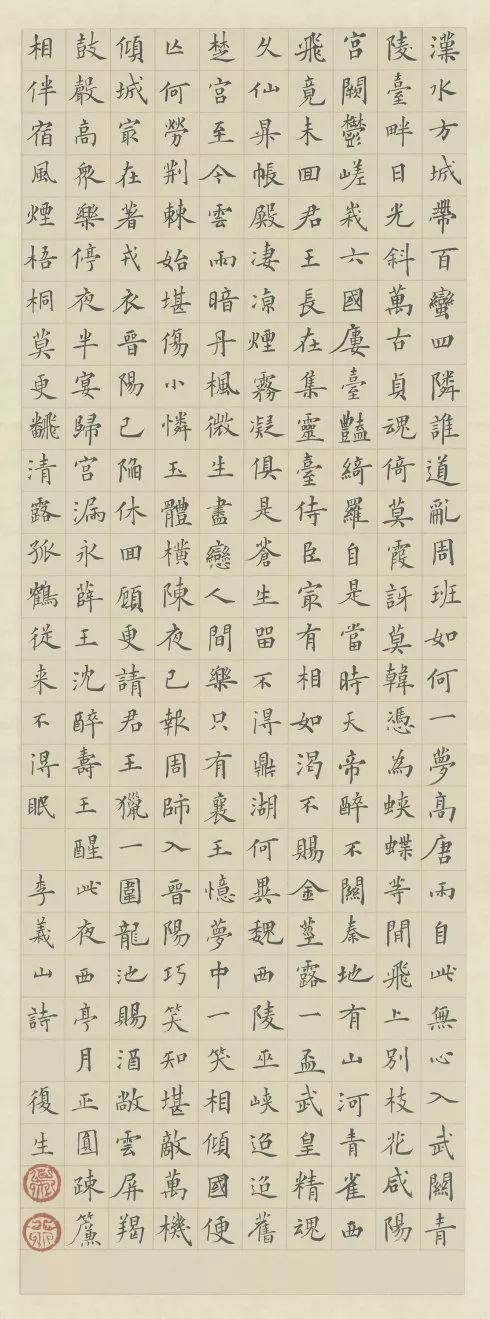 漢水方城帶百蠻四隣誰道亂周班如何一夢高唐雨自此無心入武關青
陵臺畔日光斜萬古貞魂倚莫霞訝莫韓憑為蛺蝶等閒飛上別枝花咸陽
宮闕鬱嵯峩六國廔臺豔綺羅自是當時天帝醉不關秦地有山河青雀西
飛竟未回君王長在集靈臺侍臣冣有相如渴不賜金莖露一盃武皇精魂
久仙昇帳殿淒涼煙霧凝俱是蒼生畱不得鼎湖何異魏西陵巫峽迢迢舊
楚宮至今雲雨暗丹楓微生盡戀人間樂只有襄王憶夢中一笑相傾國便
亾何勞荆棘始堪傷小憐玉體橫陳夜已報周師入晉陽巧笑知堪敵萬機
傾城冣在著戎衣晉陽已陷休回顧更請君王獵一圍龍池賜酒敞雲屏羯
鼓聲高衆樂停夜半宴歸宮漏永薛王沈醉壽王醒此夜西亭月正圓疎簾
相伴宿風煙梧桐莫更飜清露孤鶴從来不得眠 李義山詩 復生